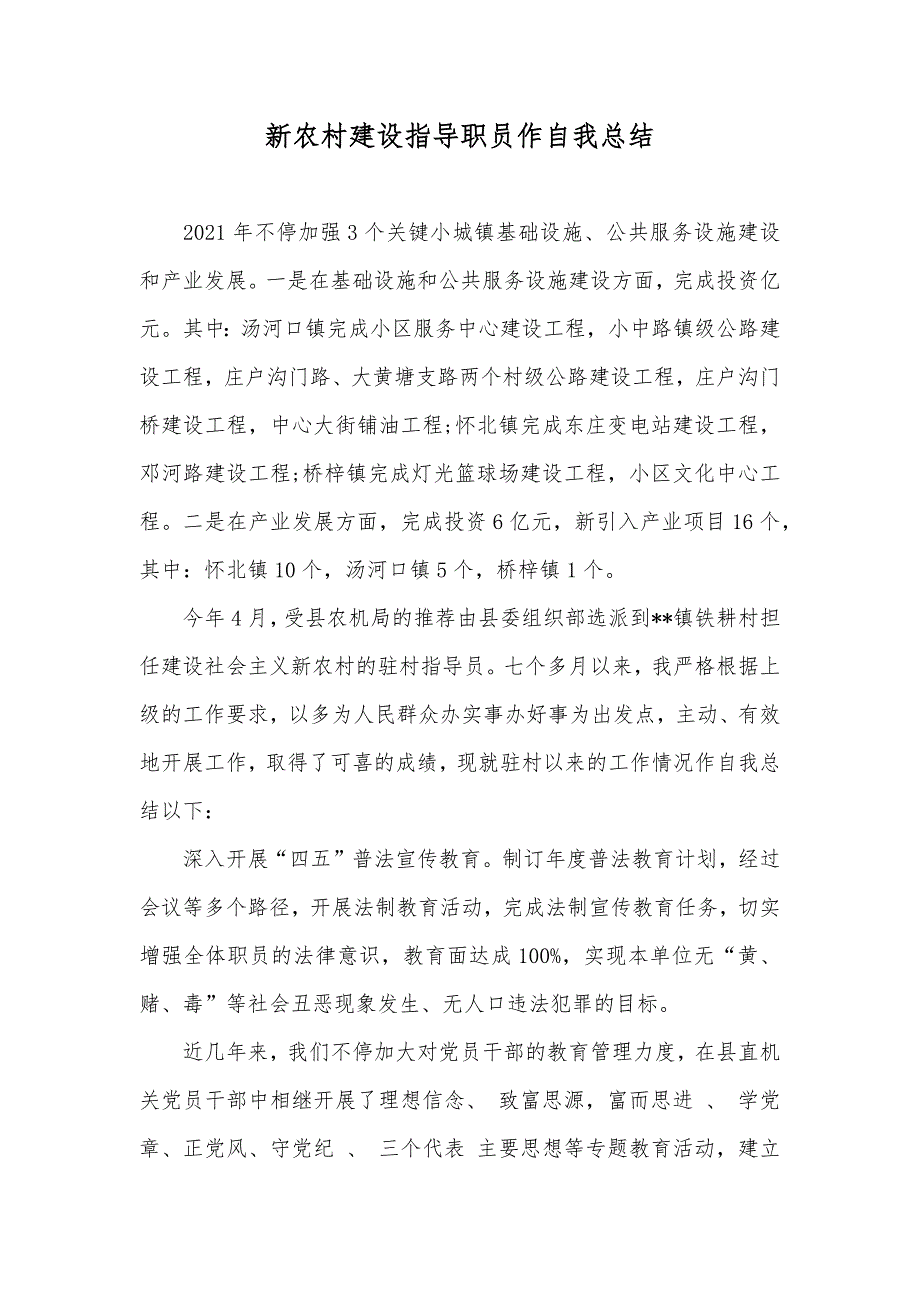 新农村建设指导职员作自我总结
2021年不停加强3个关键小城镇基础设施、公共服务设施建设
和产业发展。一是在基础设施和公共服务设施建设方面，完成投资亿
元。其中：汤河口镇完成小区服务中心建设工程，小中路镇级公路建
设工程，庄户沟门路、大黄塘支路两个村级公路建设工程，庄户沟门
桥建设工程，中心大街铺油工程;怀北镇完成东庄变电站建设工程，
邓河路建设工程;桥梓镇完成灯光篮球场建设工程，小区文化中心工
程。二是在产业发展方面，完成投资6亿元，新引入产业项目16个，
其中：怀北镇10个，汤河口镇5个，桥梓镇1个。
今年4月，受县农机局的推荐由县委组织部选派到**镇铁耕村担
任建设社会主义新农村的驻村指导员。七个多月以来，我严格根据上
级的工作要求，以多为人民群众办实事办好事为出发点，主动、有效
地开展工作，取得了可喜的成绩，现就驻村以来的工作情况作自我总
结以下：
深入开展“四五”普法宣传教育。制订年度普法教育计划，经过
会议等多个路径，开展法制教育活动，完成法制宣传教育任务，切实
增强全体职员的法律意识，教育面达成100%，实现本单位无“黄、
赌、毒”等社会丑恶现象发生、无人口违法犯罪的目标。
近几年来，我们不停加大对党员干部的教育管理力度，在县直机
关党员干部中相继开展了理想信念、 致富思源，富而思进 、 学党
章、正党风、守党纪 、 三个代表 主要思想等专题教育活动，建立